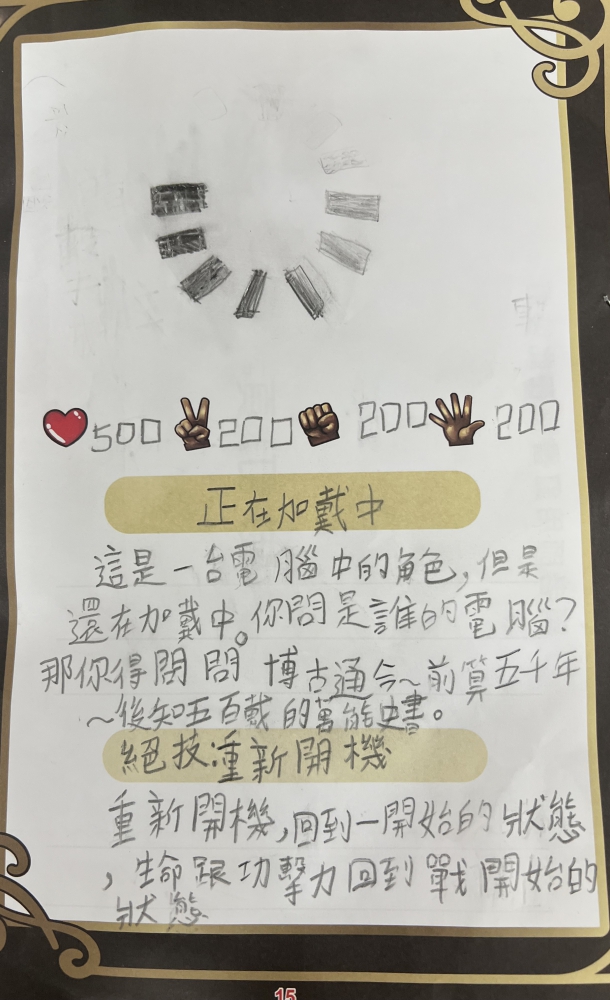 500 200 200 200
正在加戴中
這是一台電腦中的角色,但是
還在加戴中。你問是誰的電腦?
那你得問問 博古通今~前算五千年
~後知五百載的萬能史書。
絕技:重新開機
重新開機,回到一開始的狀態
,生命跟功擊力回到戰開始的
狀態
15